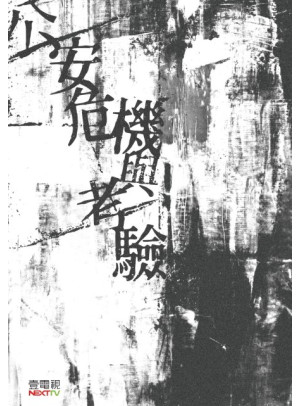 公安危
機與
考驗
壹電視
NEXTTV